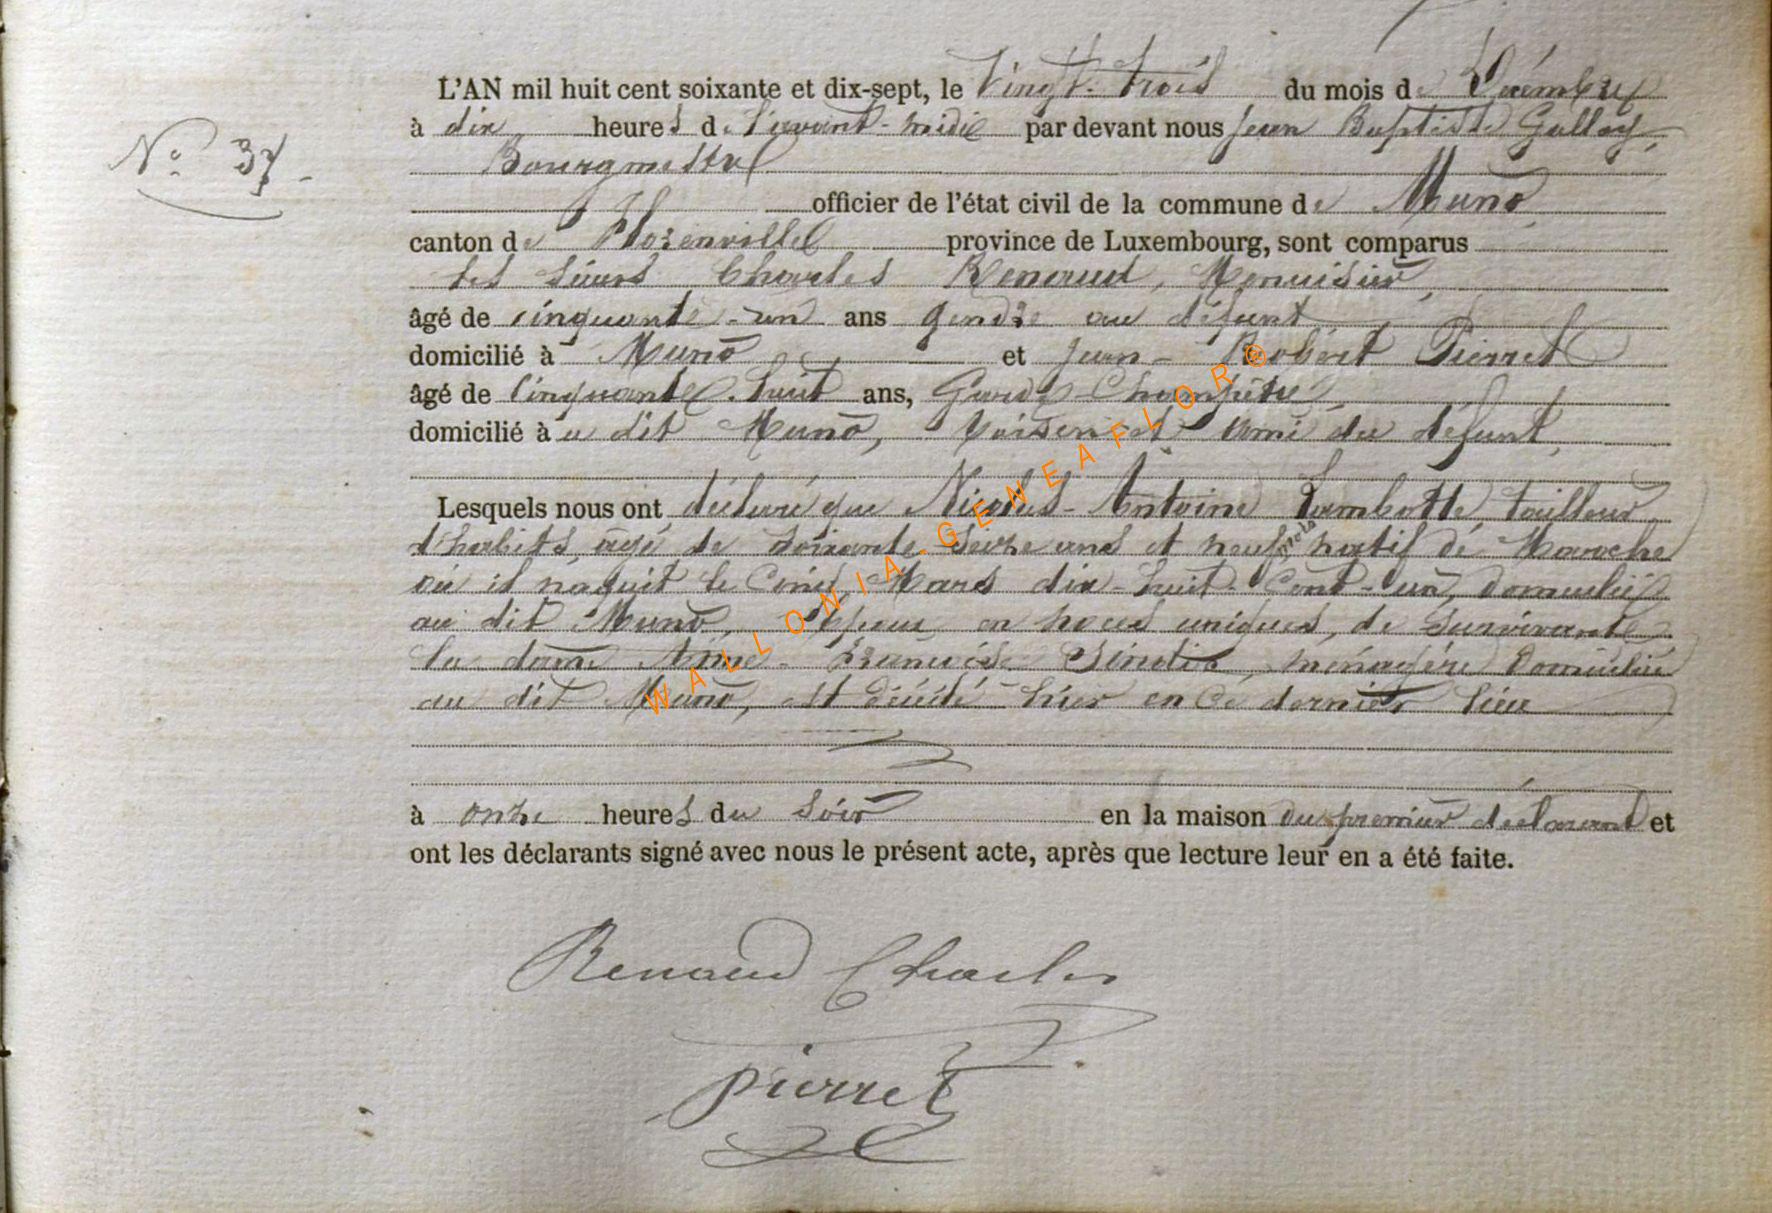 L'AN mil huit cent soixante et dix-sept, le Vingt-trois du mois de Décembre
à dix heures de l'avant-midi par devant nous Jean Baptiste Galloy,
N° 37
Bourgmestre
officier de l'état civil de la commune de Muno
canton de Florenville province de Luxembourg, sont comparus
les sieurs Charles Renaud, Menuisier,
âgé de cinquante-un ans gendre au défunt
domicilié à Muno et Jean-Robert Pierret
âgé de Cinquante-huit ans, Garde Champêtre,
domicilié à u dit Muno, Voisin et ami du défunt,
Lesquels nous ont déclaré que Nicolas-Antoine Lambotte tailleur
d'habits, agé de soixante seize ans et neuf mois natif de
où il naquit le Cinq Mars dix-huit-Cent-un, domicilié
au dit Muno, Epoux en noces uniques, de survivante
la dame Anne-Françoise ménagère domiciliée
au dit Muno, est décédé hier en ce dernier lieu
à onze heures du soir en la maison du premier déclarant et
ont les déclarants signé avec nous le présent acte, après que lecture leur en a été faite.
Renaud Charles
Pierret
WALLONIA-GENEAFLOR®